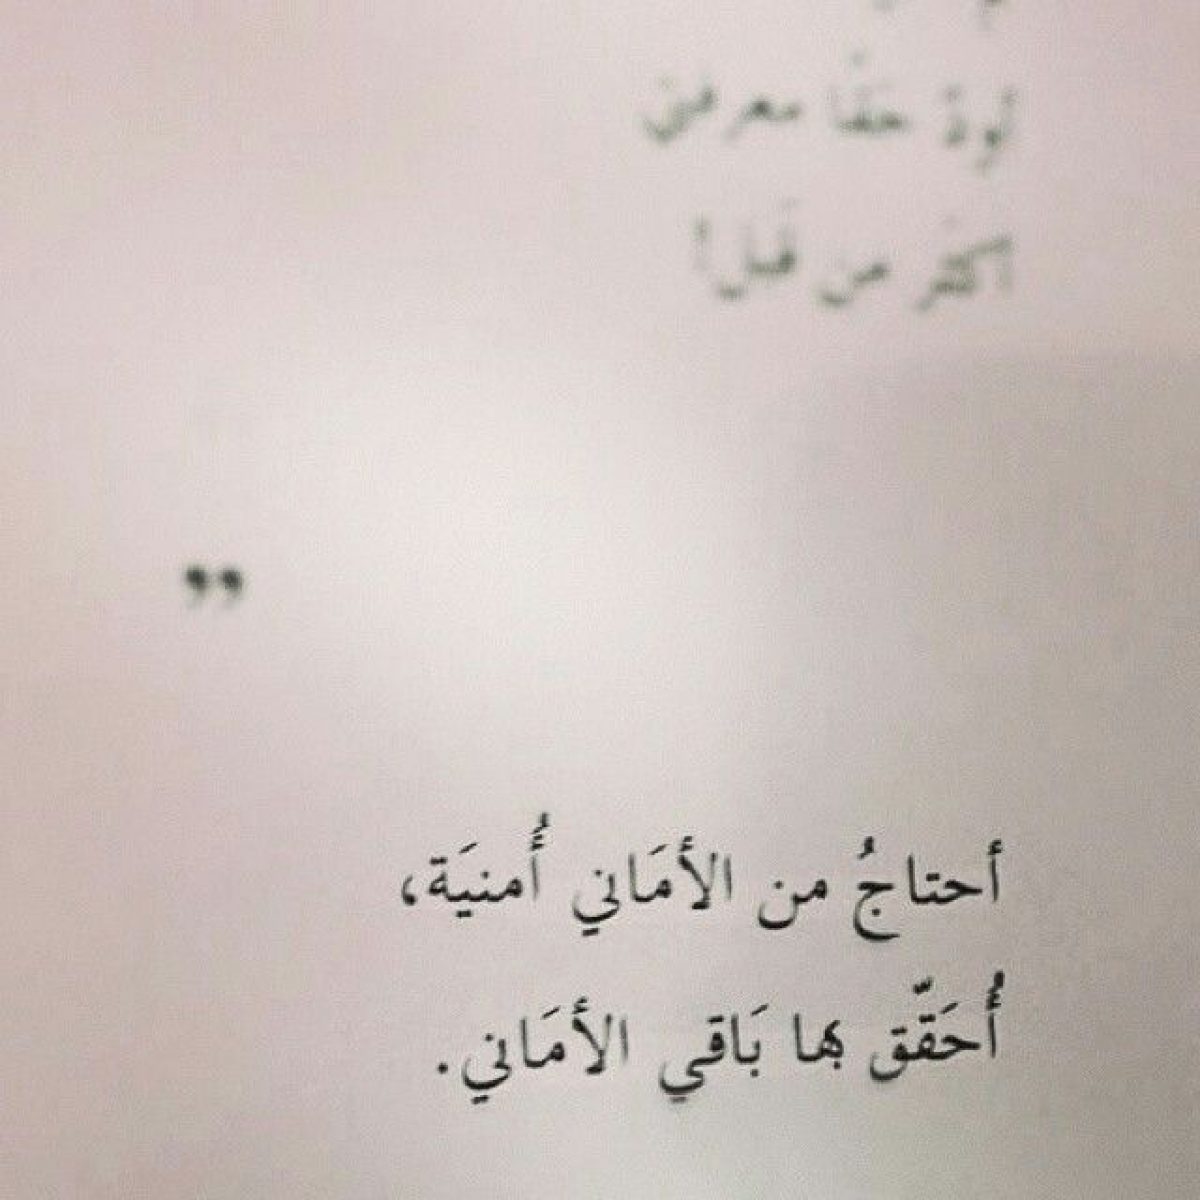 تودّ حقًا معرفتي
أكثَر من قَبل!
”
أحتاجُ من الأمَاني أُمنيَة،
أُحَقّق بها بَاقي الأمَاني.